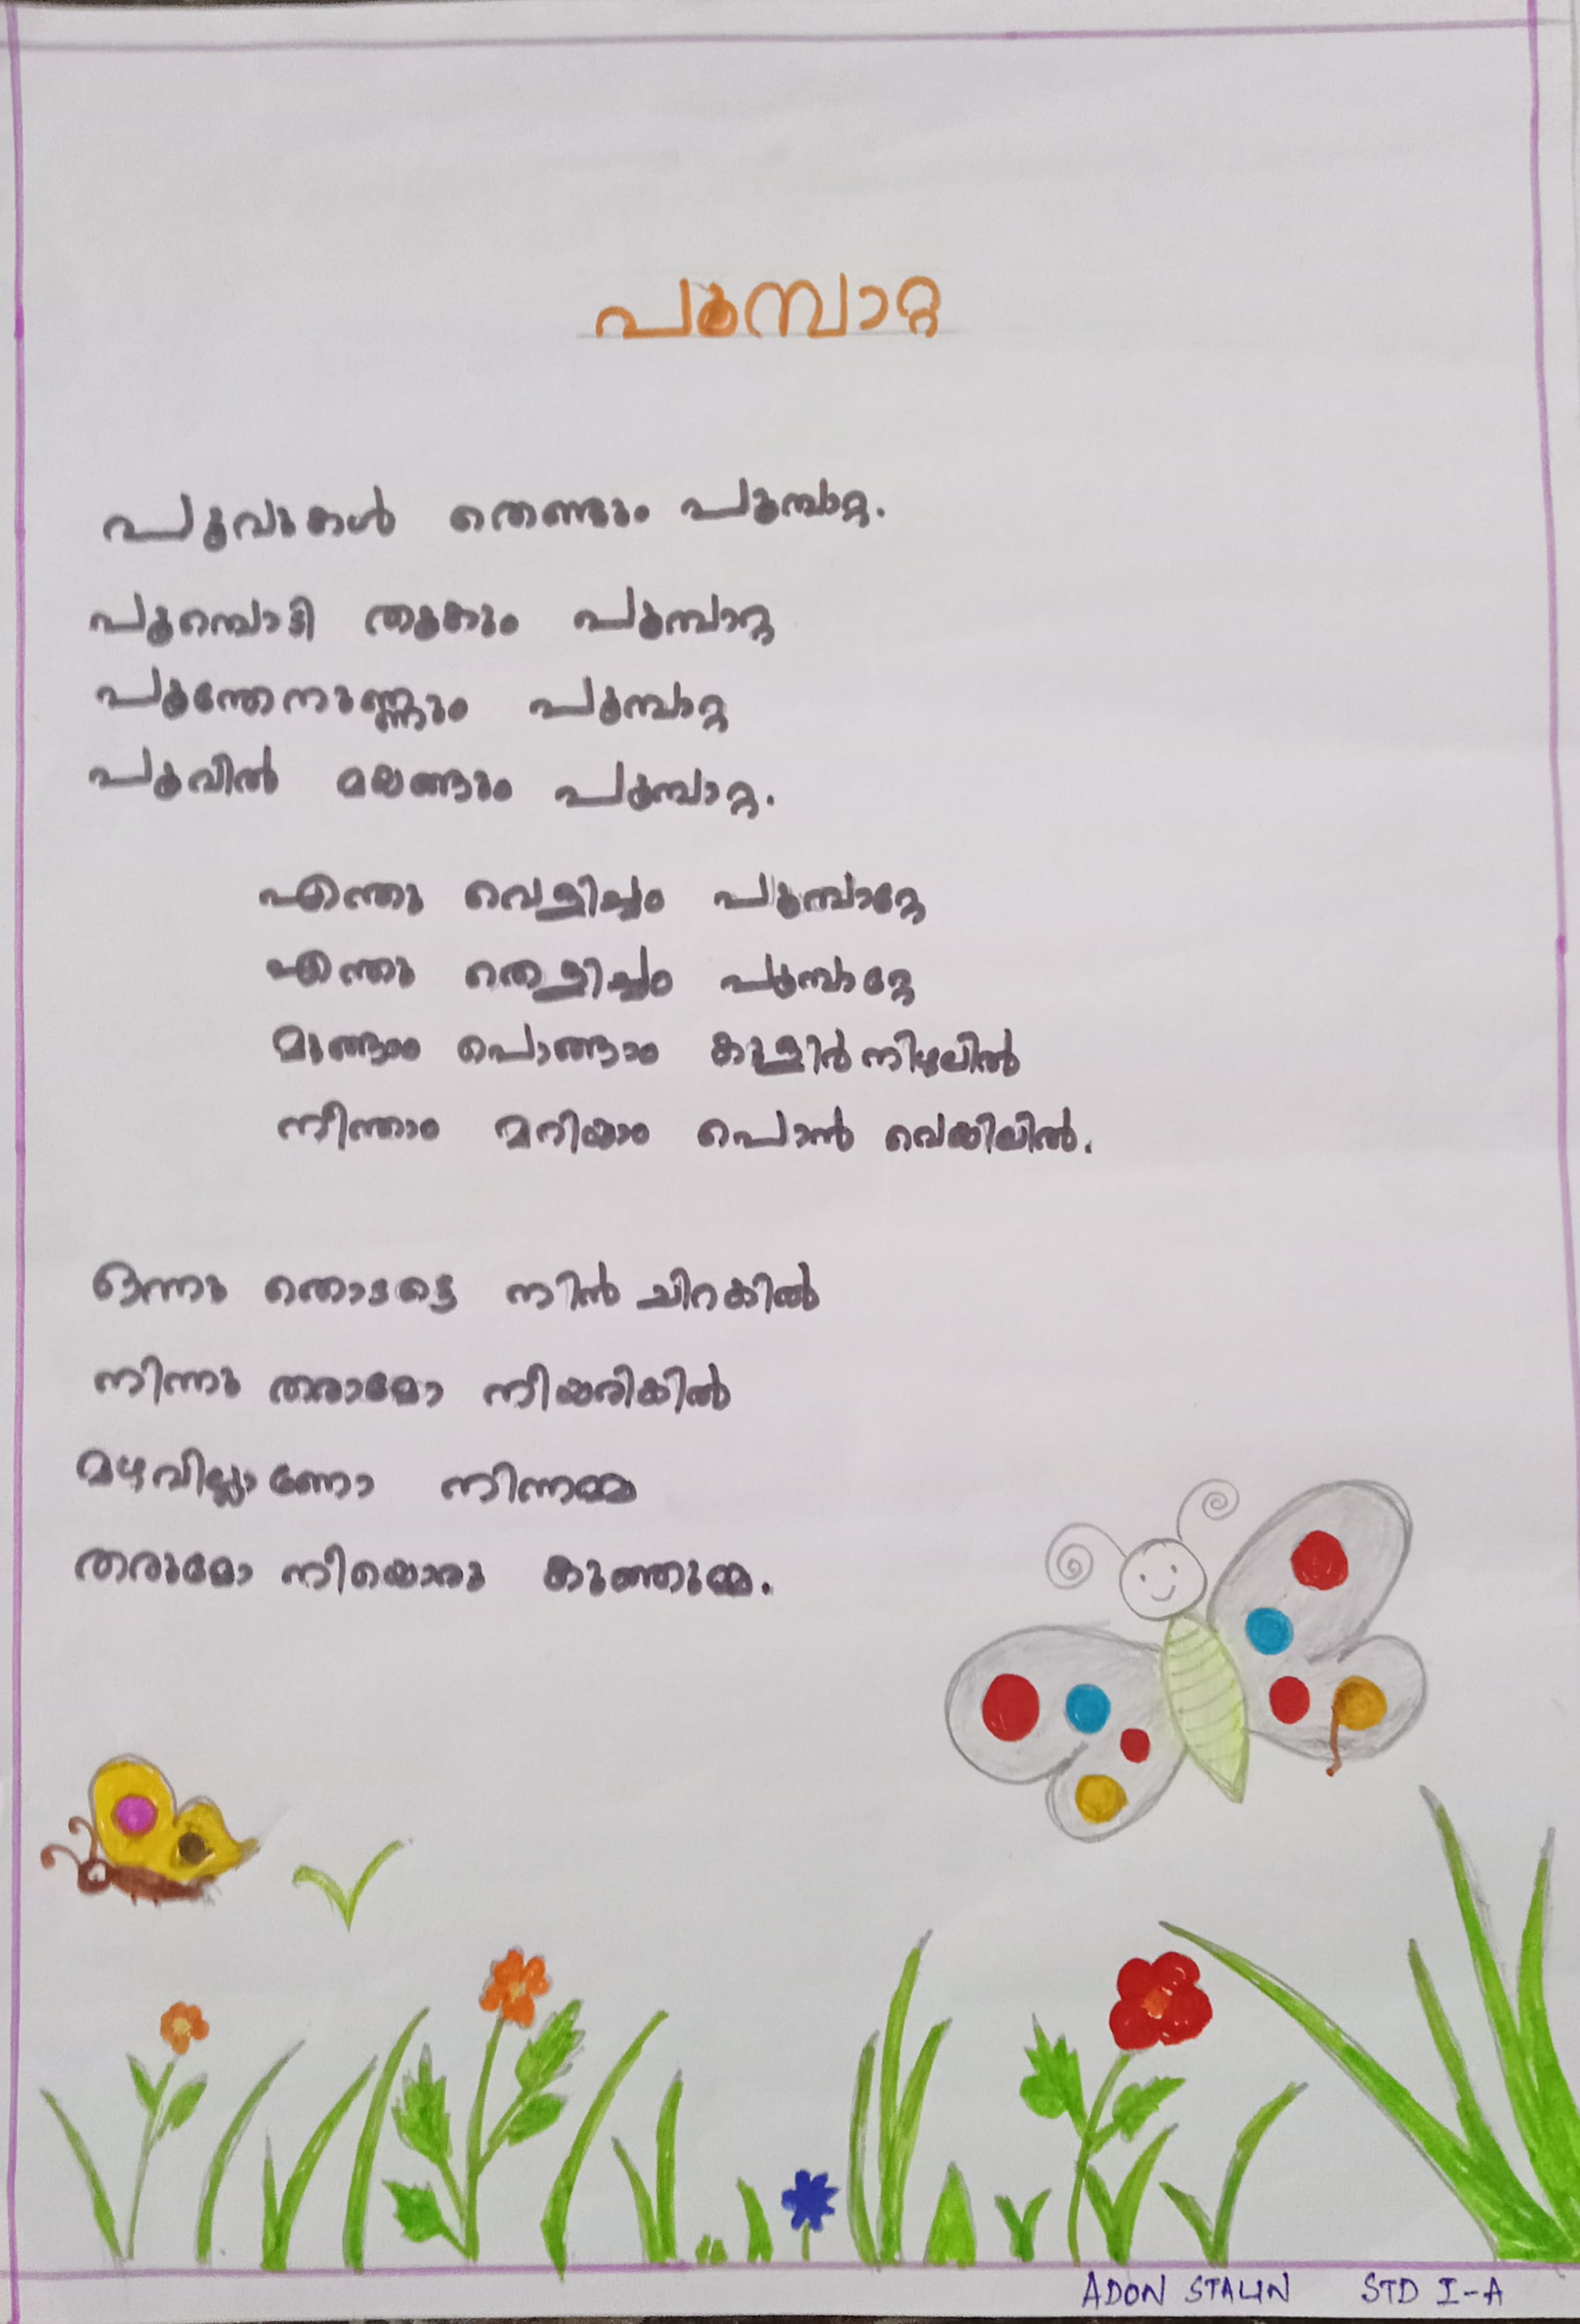 പൂമ്പാറ്റ
പൂവുകൾ തെണ്ടും പൂമ്പാറ്റ.
പൂമ്പൊടി തൂകും പൂമ്പാറ്റ
പൂന്തേനുണ്ണും പൂമ്പാറ്റ
പൂവിൽ മയങ്ങും പൂമ്പാറ്റ.
എന്തു വെളിച്ചം പൂമ്പാറ്റേ
എന്തു തെളിച്ചം പൂമ്പാറ്റേ
മുങ്ങാം പൊങ്ങാം കുളിർ നിഴലിൽ
നീന്താം മറിയാം പൊൻ വെയിലിൽ.
ഒന്നു തൊടട്ടെ നിൻ ചിറകിൽ
നിന്നു തരാമോ നീയരികിൽ
മഴവില്ലാണോ നിന്നമ്മ
തരുമോ നീയൊരു കുഞ്ഞുമ്മ.
ADON STALIN STD I-A